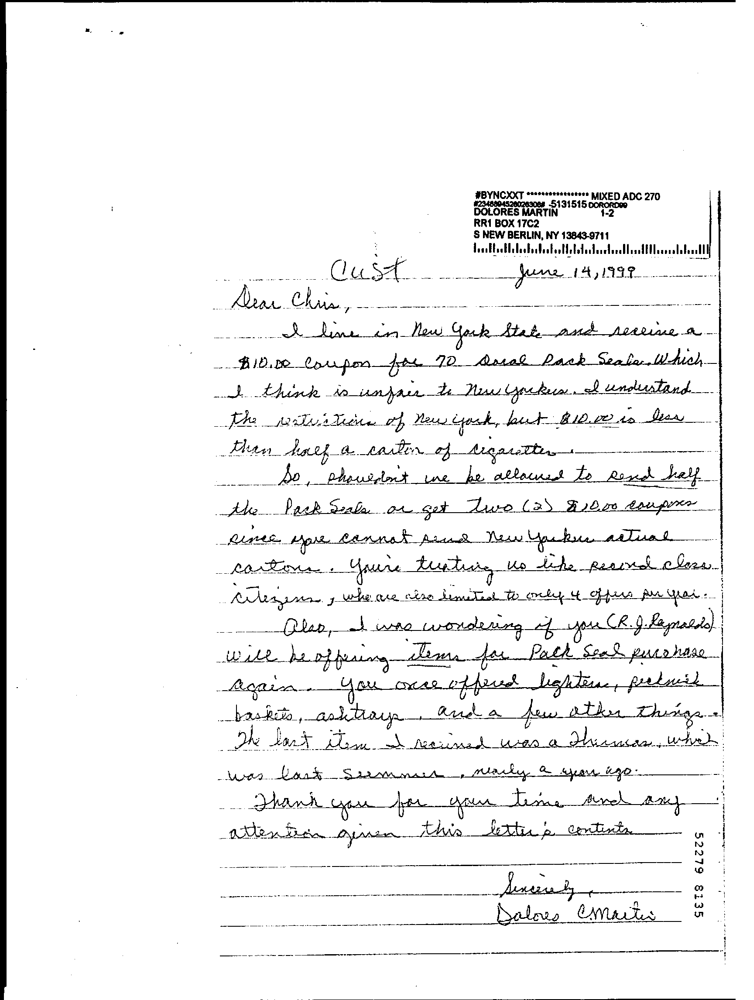 #BYNCXXT ***************** MIXED ADC 270
-5131515 DORORD99
DOLORES MARTIN 1-2
RR1 BOX 17C2
S NEW BERLIN, NY 13843-9711
Cust June 14, 1999
Dear Chris,
I live in New York State and receive a
$10.00 coupon for 70 Doral Pack Seals. Which
I think is unfair to New Yorkers. I understand
the restrictions of New York, but $10.00 is less
than half a carton of cigarettes.
So, shouldn't we be allowed to send half
the Pack Seals or get two (2) $10.00 coupons
since you cannot send New Yorkers actual
cartons. You're treating us like second class
citizens, who are also limited to only 4 offers per year.
Also, I was wondering if you (R.J. Reynolds)
will be offering items for Pack Seal purchase
again. You once offered lighters, picknick
baskets, ashtrays, and a few other things.
The last item I received was a Thermos, which
was last Summer, nearly a year ago.
Thank you for your time and any
attention given this letter's contents
Sincerely,
Dolores C Martin
52279 8135